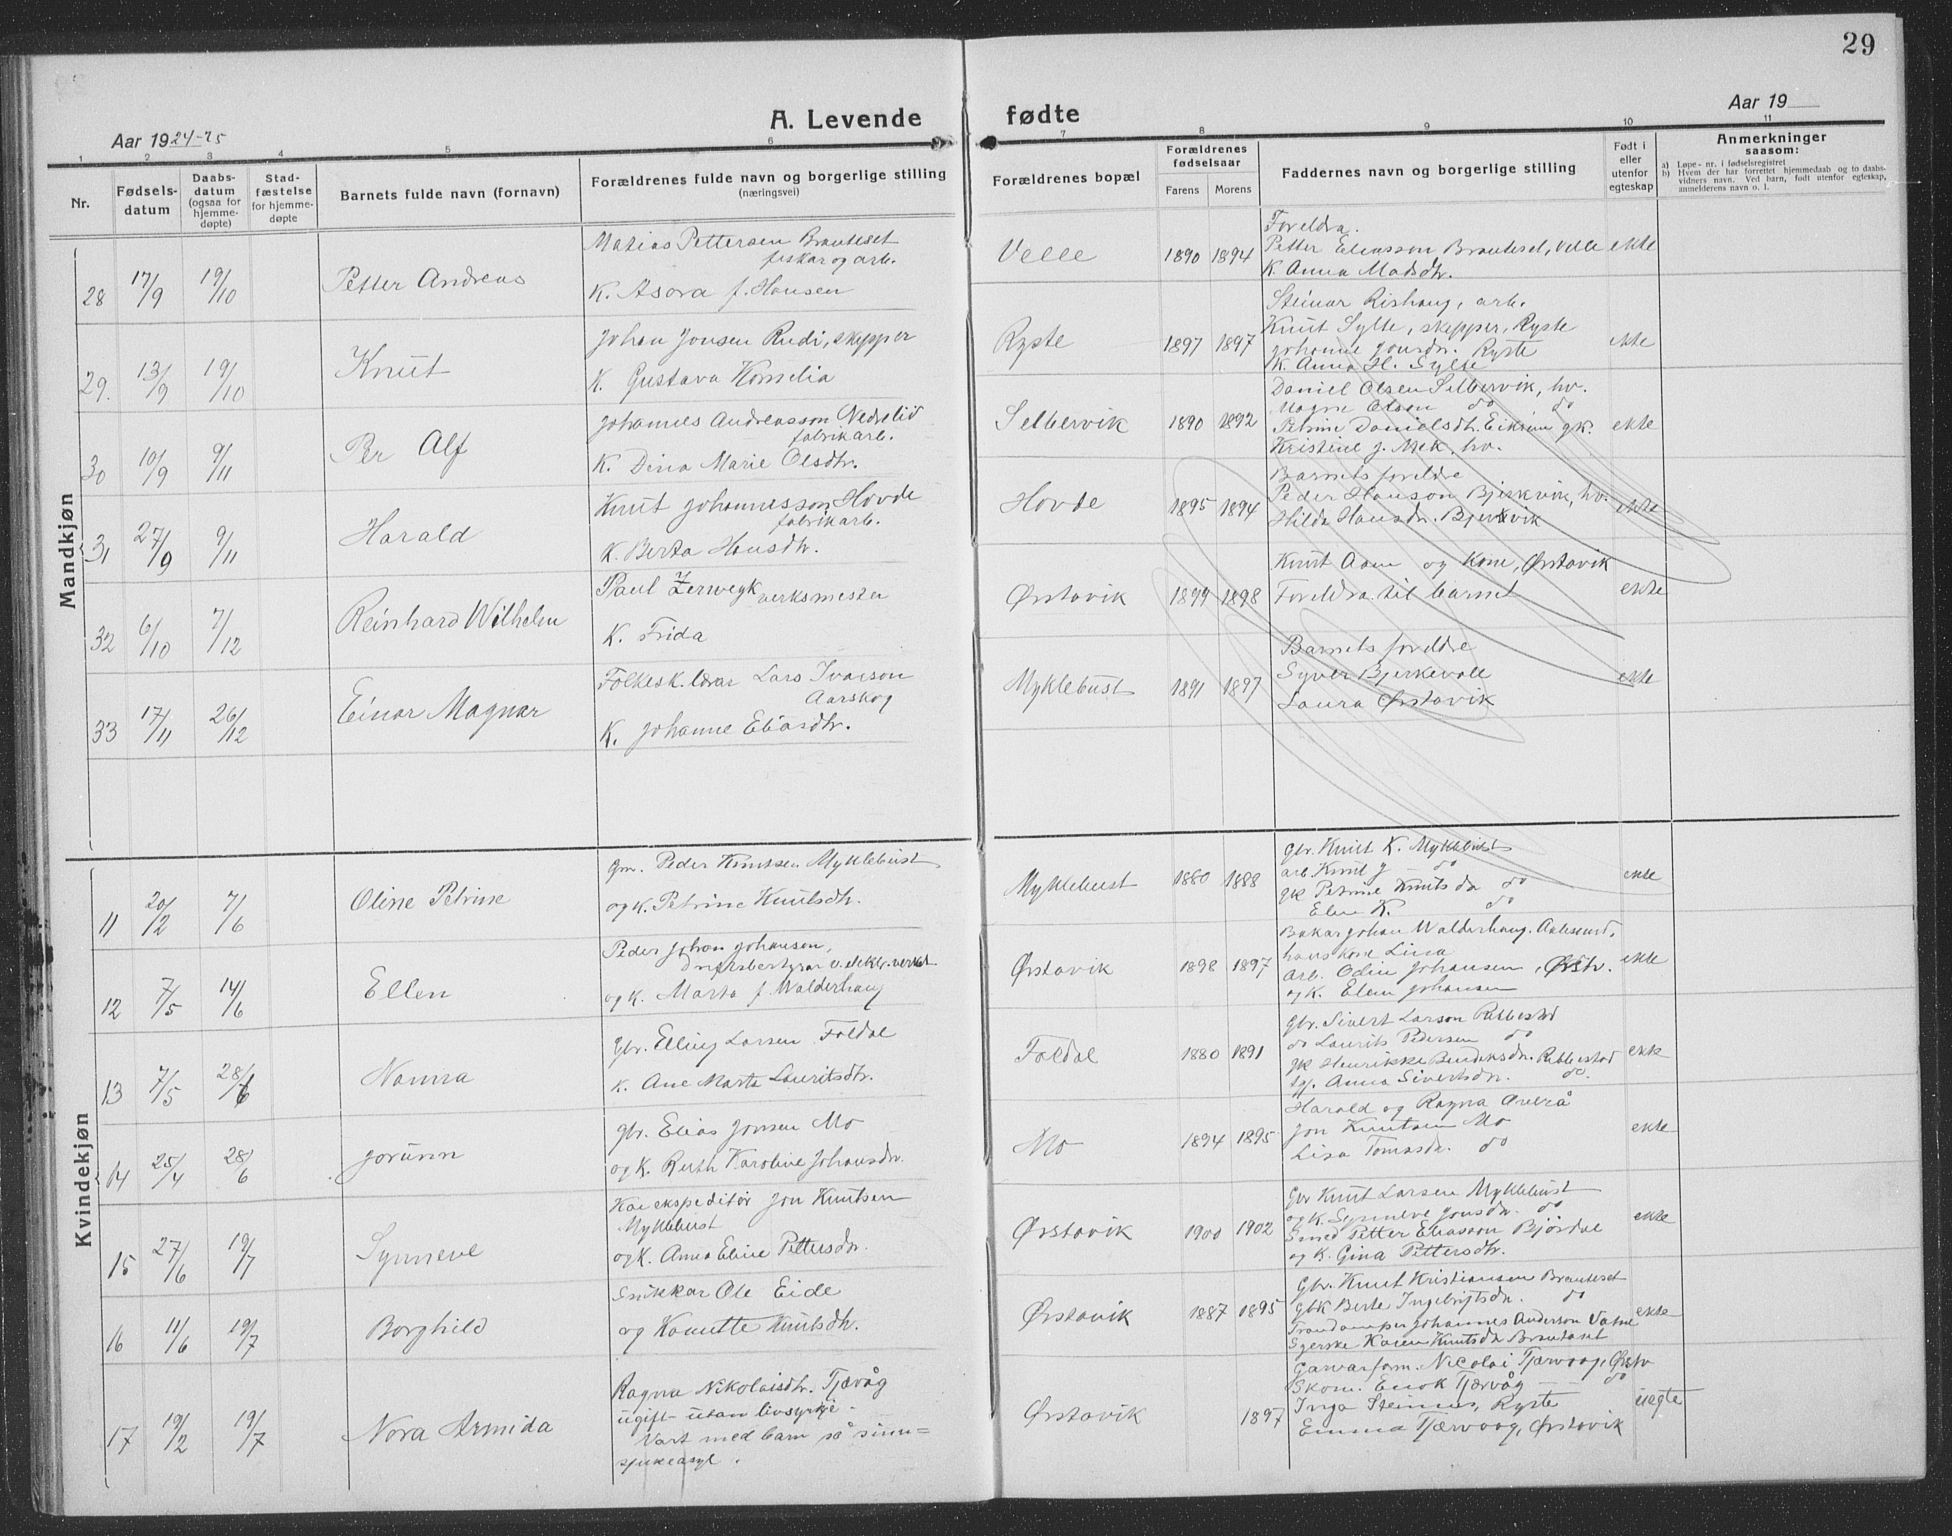 29
A. Levende fødte
Aar 1924-25
Aar 19
1 2 3 4 5 6 7 8 9 10 11
Nr.
Fødsels-datum
Daabs-datum (ogsaa for hjemme-døpte)
Stad-fæstelse for hjemme-døpte
Barnets fulde navn (fornavn)
Forældrenes fulde navn og borgerlige stilling (næringsvei)
Forældrenes bopæl
Forældrenes fødselsaar
Farens Morens
Faddernes navn og borgerlige stilling
Født i eller utenfor egteskap
Anmerkninger saasom:
a) Løpe-nr. i fødselsregistret
b) Hvem der har forrettet hjemmedaab og to daabs-vidners navn. Ved barn, født utenfor egteskap, anmelderens navn o. l.
Mandkjøn
28 17/9 19/10 Petter Andreas
Matias Pettersen Brauteset
fiskar og arb.
K. Asora f. Hansen
Velle 1890 1894
Foreldra.
Petter Eliasson Brauteset, Velle
K. Anna Madsdtr.
ekte
29. 13/9 19/10 Knut
Johan Jonsen Rudi, skipper
K. Gustava Kornelia
Ryste 1897 1897
Steinar Rishaug, arb.
Knut Sylte, skipper, Ryste
Johanne Jonsdr. Ryste
K. Anna H. Sylte
ekte
30 10/9 9/11 Per Alf
Johannes Andreasson Nedrelid
fabrikarb.
K. Dina Marie Olsdtr.
Setbervik 1890 1892
Daniel Olsen Setbervik, hv.
Magne Olsen do do
Petrine Danielsdtr. Eikrem gk.
Kristine J. Mek, hv.
ekte
31 27/9 9/11 Harald
Knut Johannesson Hovde
fabrikarb.
K. Berta Hansdtr.
Hovde 1895 1894
Barnets foreldre
Peder Hanson Bjerkvik, hv.
Hilda Hansdr. Bjerkvik
ekte
32 6/10 7/12 Reinhard Wilhelm
Paul Zerwegk verksmester
K. Frida
Ørstavik 1899 1898
Knut Aam og Kone, Ørstavik
Foreldra til barnet
ekte
33 17/11 26/12 Einar Magnar
Folkesk. lærar Lars Ivarson
Aarskog
K. Johanne Eliasdtr.
Myklebust 1891 1897
Barnets foreldre
Syver Bjerkevoll
Laura Ørstavik
ekte
Kvindekjøn
11 20/2 7/6 Oline Petrine
Gm. Peder Knutsen Myklebust
og K. Petrine Knutsdtr.
Myklebust 1880 1888
Gbr. Knut K. Myklebust
arb. Knut J — do
gk Petrine Knutsda do
Elen K. do
ekte
12 7/5 14/6 Ellen
Peder Johan Johansen,
Driftsbestyrar v. elektr. verket
og K. Marta f. Walderhaug
Ørstavik 1898 1897
Bakar Johan Walderhaug. Aalesund,
hans kone Lina
Arb. Odin Johansen, Ørstv.
og K. Elen Johansen
ekte
13 7/5 28/6 Nanna
Gbr. Elling Larsen Foldal
K. Ane Marta Lauritsdtr.
Foldal 1880 1891
Gbr. Sivert Larson Rebbestad
do Laurits Pedersen do
gk Henrikke Bendiksdr. Rebbestad
tj. Anna Sivertsdr. do.
ekte
14 25/4 28/6 Jorunn
Gbr. Elias Jonsen Mo
og K. Ruth Karoline Johansdr.
Mo 1894 1895
Harald og Ragna Averå
Jon Knutsen Mo
Lisa Tomasdr. do
ekte
15 27/6 19/7 Synneve
Kaiekspeditør Jon Knutsen
Myklebust
og K. Anna Eline Pettersdr.
Ørstavik 1900 1902
Gbr Knut Larsen Myklebust
og K. Synneve Jonsdr. do
Smed Petter Eliasson Bjørdal
og K. Gina Pettersdtr.
ekte
16 11/6 19/7 Borghild
Snikkar Ole Eide
og Hanette Knutsdtr.
Ørstavik 1887 1895
Gbr. Knut Kristiansen Brauteset
GbK Berte Ingebrigtsdr. do
Trandamper Johannes Anderson Vatne
Syerske Karen Knutsda Brauteset
ekte
17 19/2 19/7 Nora Armida
Ragna Nikolaisdtr. Tjærvåg
ugift — utan livsyrkje.
Vart med barn så sinn=
sjukeasyl.
Ørstavik 1897
Garvarform. Nicolai Tjærvaag, Ørstv
Skom. Enok Tjærvåg — do
Inga Steinnes, Ryste
Emma Tjærvoog, Ørstavik
uegte